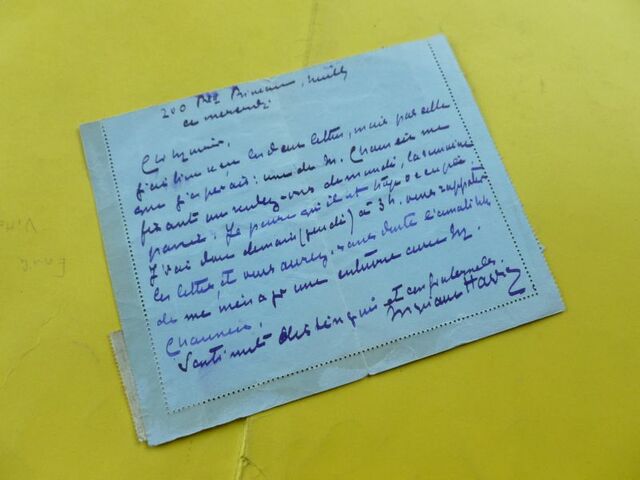 200 Bd Bineau, Neuilly
ce mercredi
Cher Monsieur,
j'ai bien reçu les deux lettres, mais pas celle
que j'espérais : une de M. Chaumeix me
fixant un rendez-vous demandé, la semaine
passée. Je pense qu'il est trop occupé.
J'irai donc demain (jeudi) à 3 h. vous rapporter
les lettres, et vous aurez, sans doute l'amabilité
de me ménager une entrevue avec M.
Chaumeix.
Sentiments distingués et confraternels.
Myriam Harry